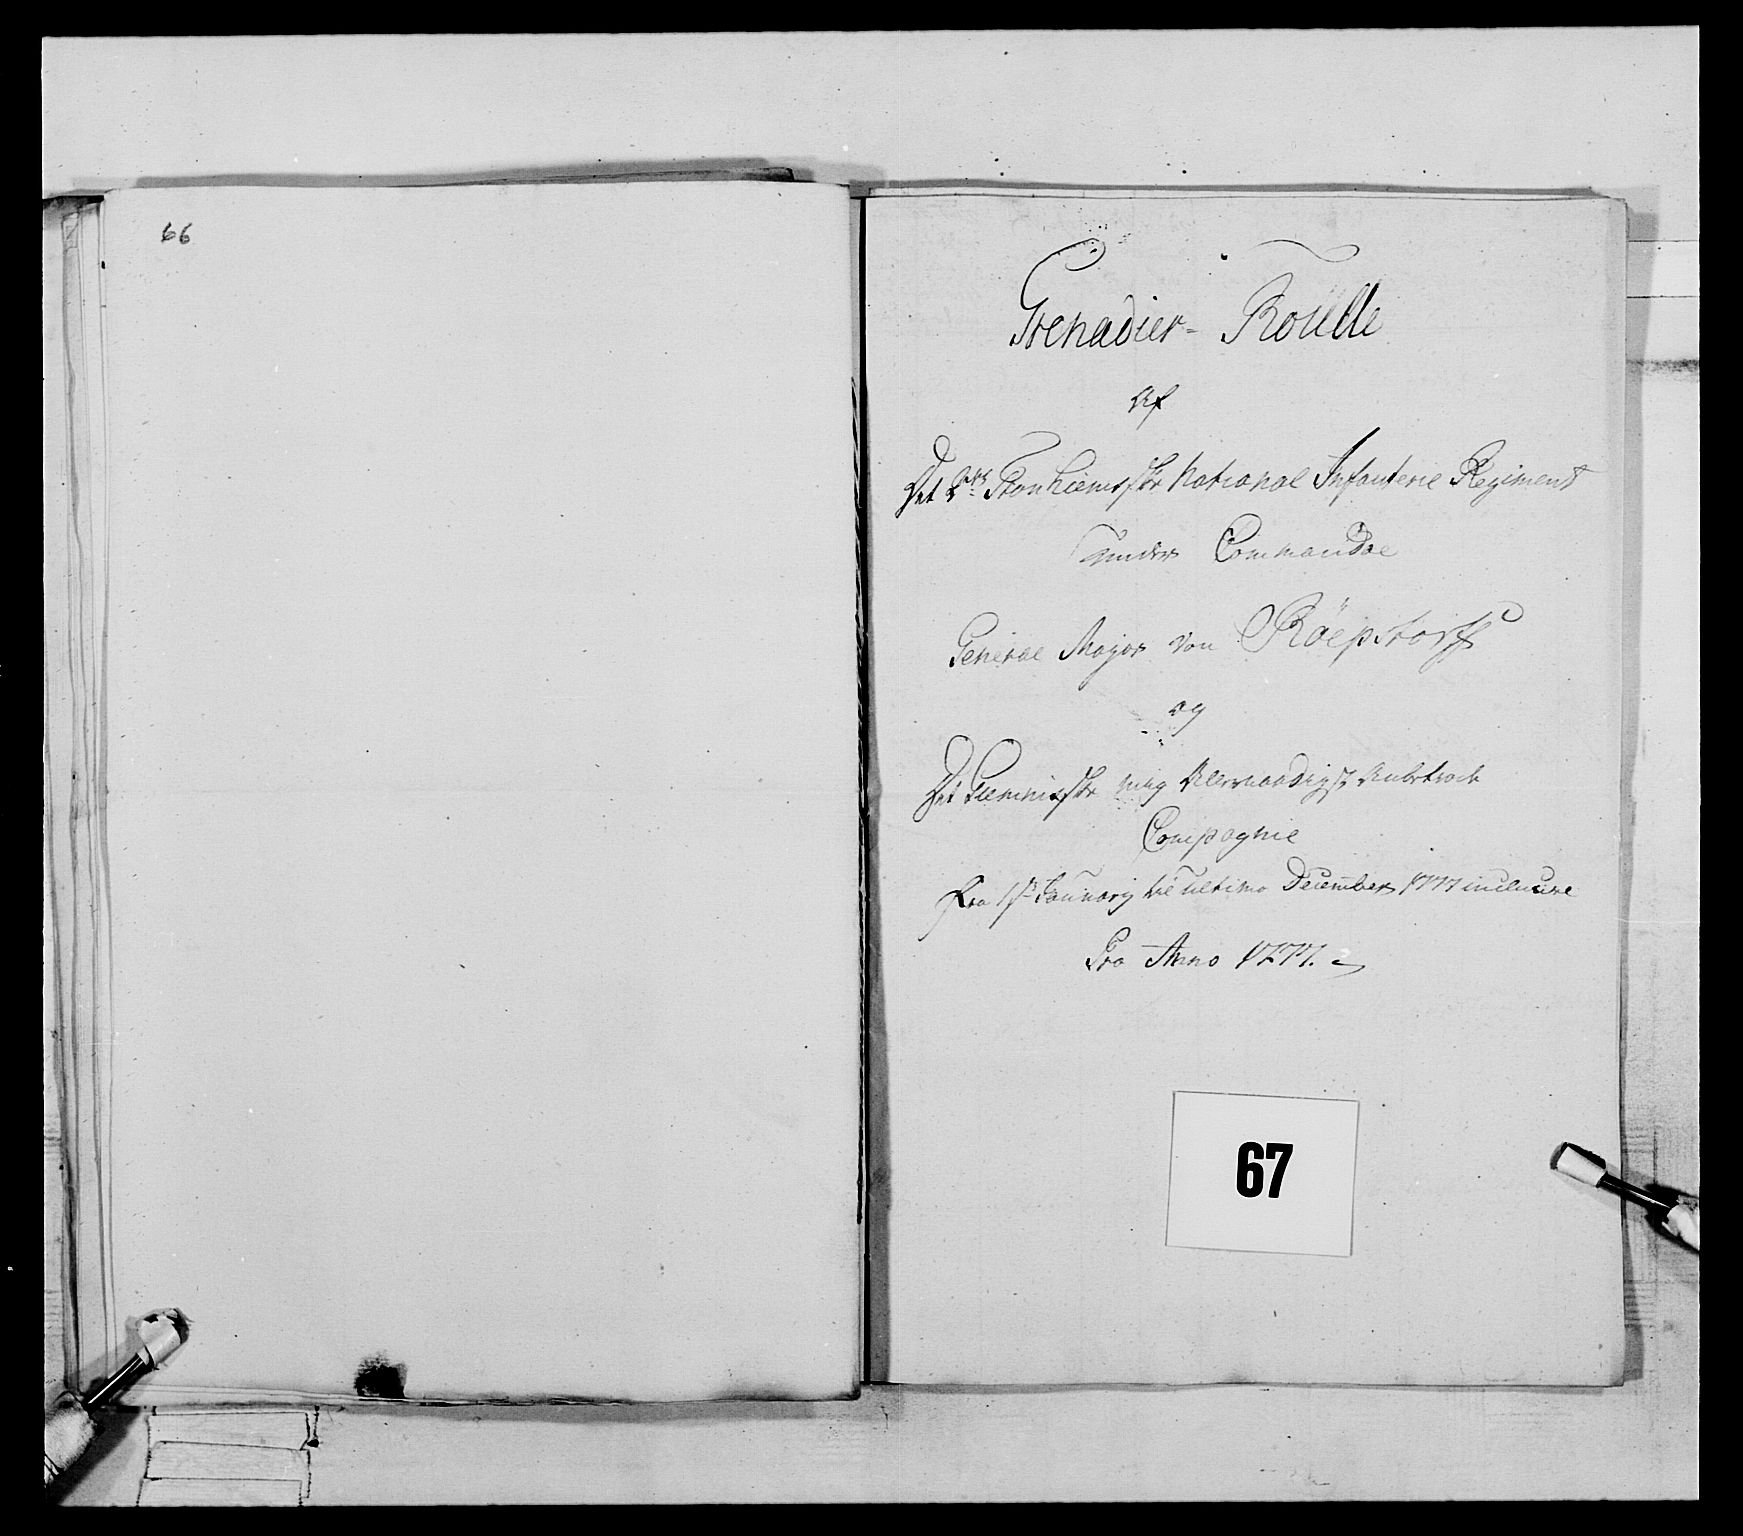 66
Grenadier- Roulle
Af
Det 2det Tronhiemske National Infanterie Regiment
under Commando
General Major von Röepstorff
og
Det mig Allernaadigst Anbetroede
Compagnie
fra 1ste Januarij til ultimo December 1777 inclusive
Pro Anno 1777.
67